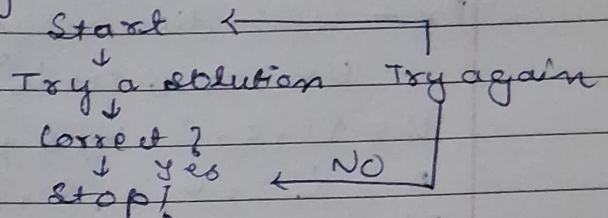 Start
Try a solution Try again
Correct?
yes NO
Stop!